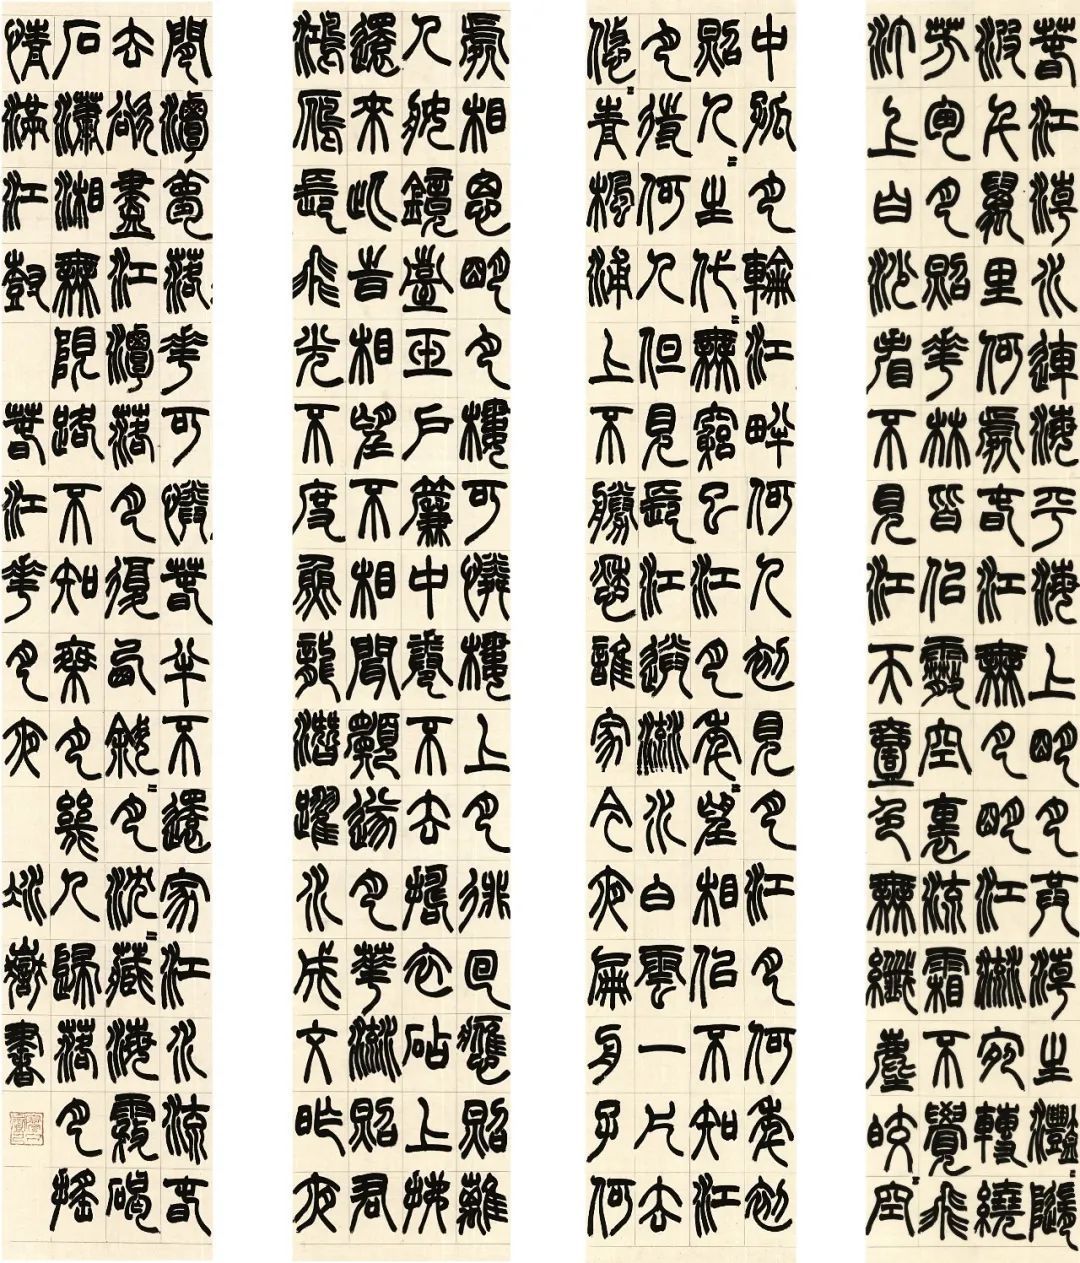 春江潮水連海平海上明月共潮生灩〻隨
波千萬里何處春江無月明江流宛轉繞
芳甸月照花林皆似霰空裏流霜不覺飛
汀上白沙看不見江天壹色無纖塵皎〻空
中孤月輪江畔何人初見月江月何年初
照人〻生代〻無窮已江月年〻望相似不知江
月待何人但見長江送流水白雲一片去
悠〻青楓浦上不勝愁誰家今夜扁舟子何
處相思明月樓可憐樓上月徘回應照離
人妝鏡臺玉戶簾中卷不去擣衣砧上拂
還來此時相望不相聞願逐月華流照君
鴻雁長飛光不度魚龍潛躍水成文昨夜
閒潭夢落花可憐春半不還家江水流春
去欲盡江潭落月復西斜〻月沈〻藏海霧碣
石瀟湘無限路不知乘月幾人歸落月搖
情滿江樹 春江花月夜 書